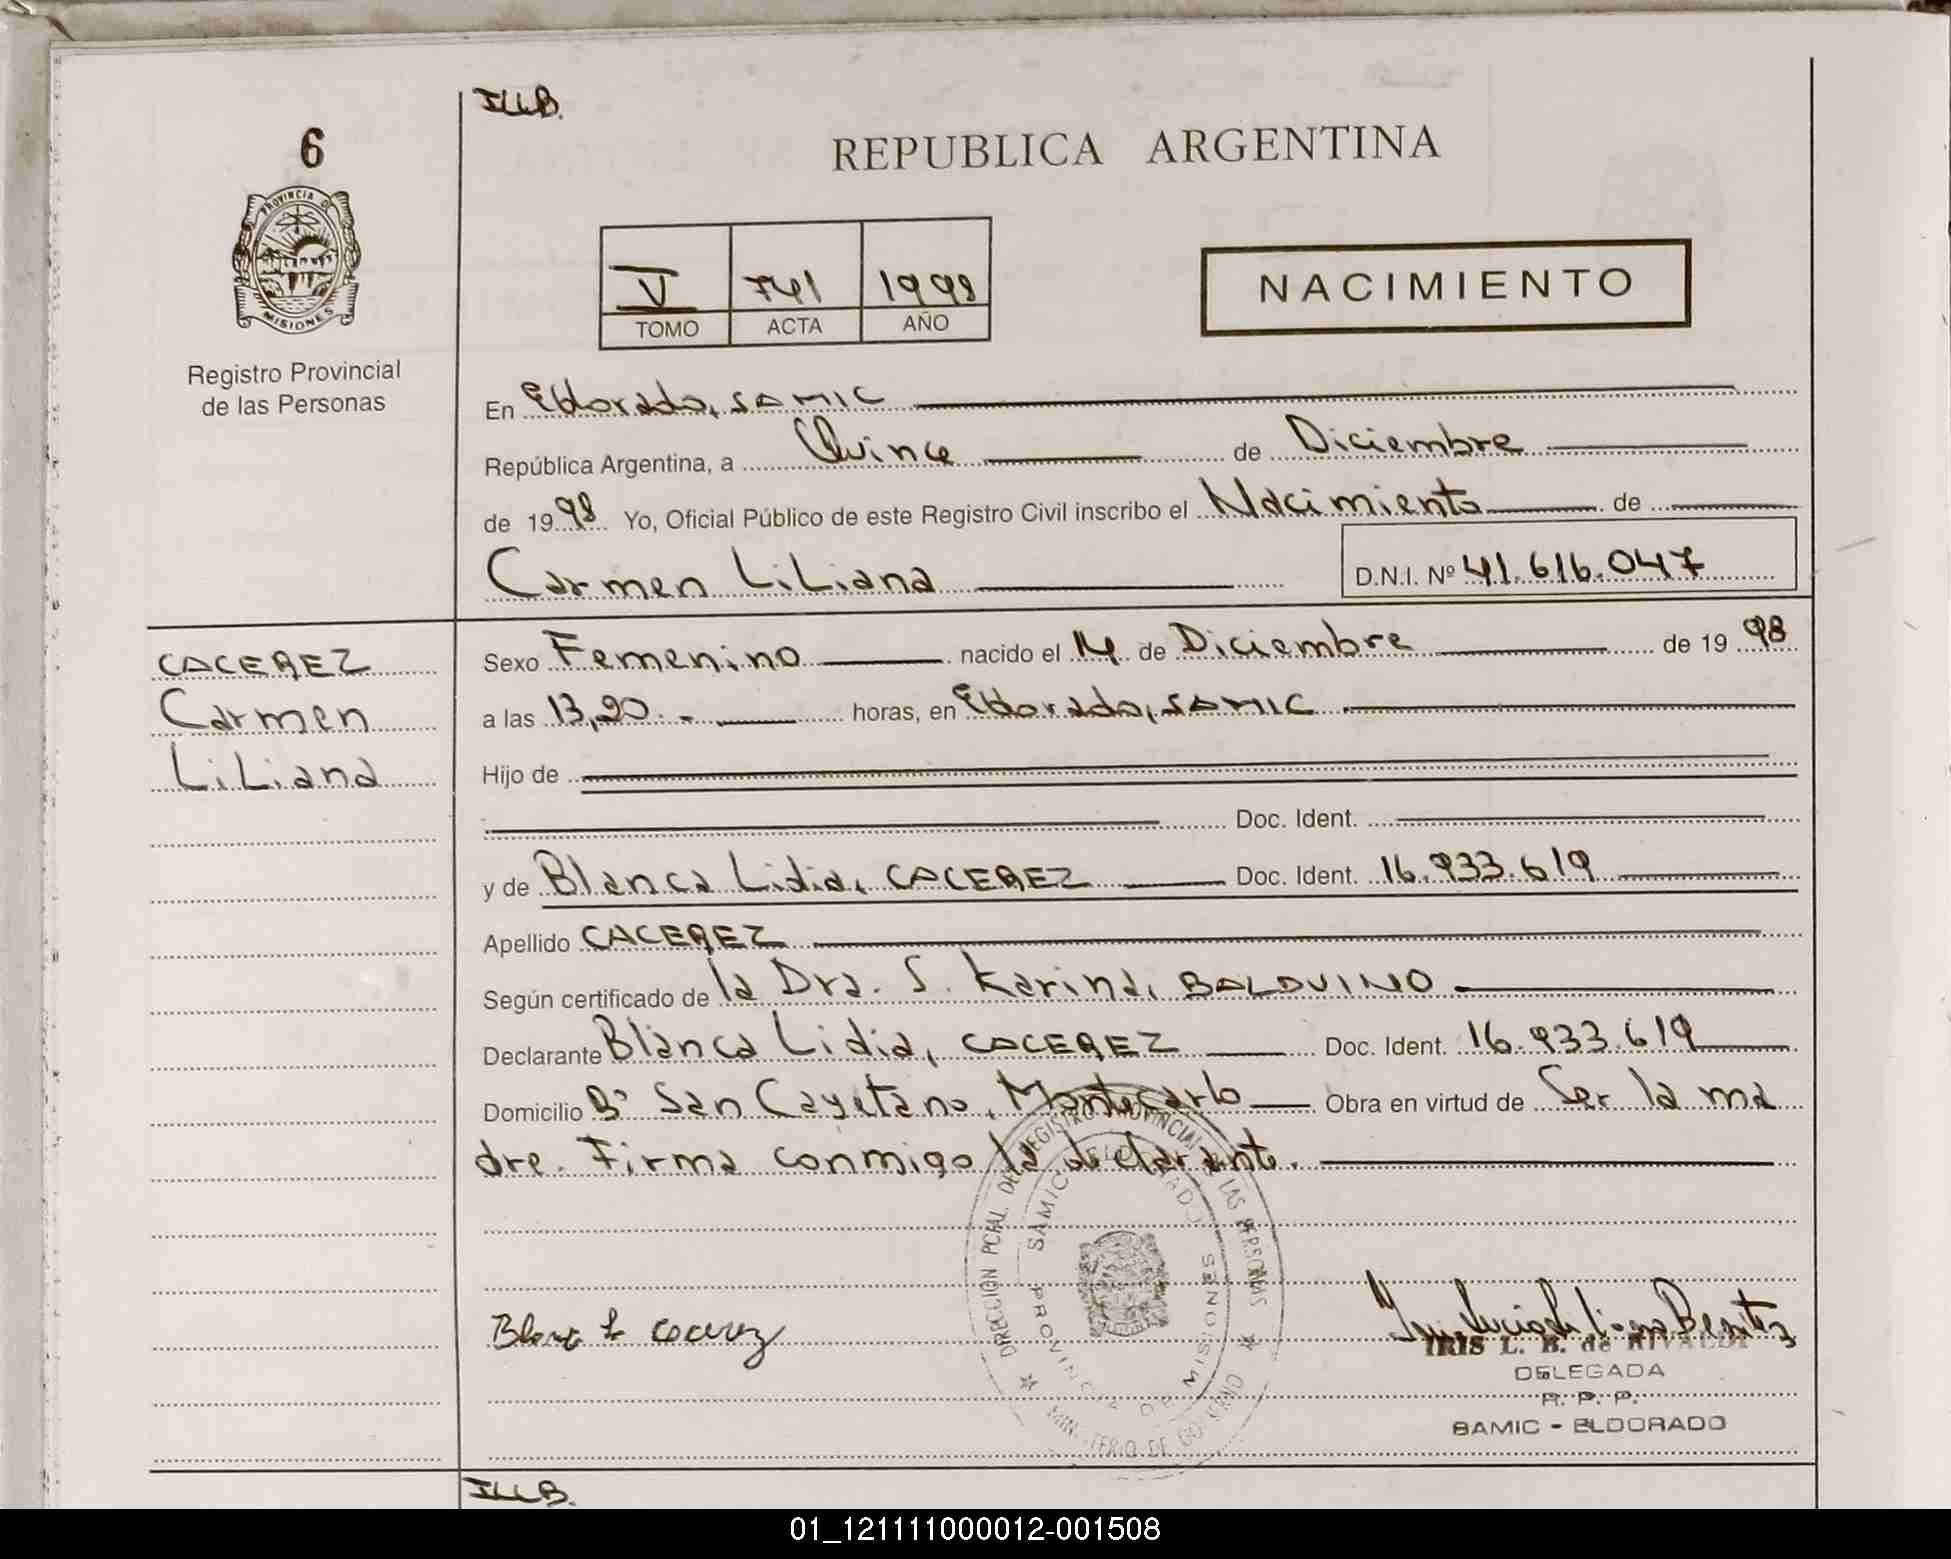 ILLB.
6
REPUBLICA ARGENTINA
PROVINCIA DE
MISIONES
V 741 1998
TOMO ACTA AÑO
NACIMIENTO
Registro Provincial
de las Personas
En Eldorado, SAMIC
República Argentina, a Quince de Diciembre
de 1998 Yo, Oficial Público de este Registro Civil inscribo el Nacimiento de
Carmen Liliana D.N.I. Nº 41.616.047
CACEREZ
Carmen
Liliana
Sexo Femenino nacido el 14 de Diciembre de 1998
a las 13,20.- horas, en Eldorado, SAMIC
Hijo de
Doc. Ident.
y de Blanca Lidia, CACEREZ Doc. Ident. 16.933.619
Apellido CACEREZ
Según certificado de la Dra. S. Karina, BALDUINO
Declarante Blanca Lidia, CACEREZ Doc. Ident. 16.933.619
Domicilio Bº San Cayetano, Montecarlo Obra en virtud de Ser la ma
dre. Firma conmigo la declarante.
DIRECCION PCIAL. DEL REGISTRO PROVINCIAL DE LAS PERSONAS
SAMIC ELDORADO
PROVINCIA DE MISIONES
MINISTERIO DE GOBIERNO
Blanca L Cacerez
IRIS L. B. de RIVALDI
DELEGADA
R. P. P.
SAMIC - ELDORADO
ILLB.
01_121111000012-001508